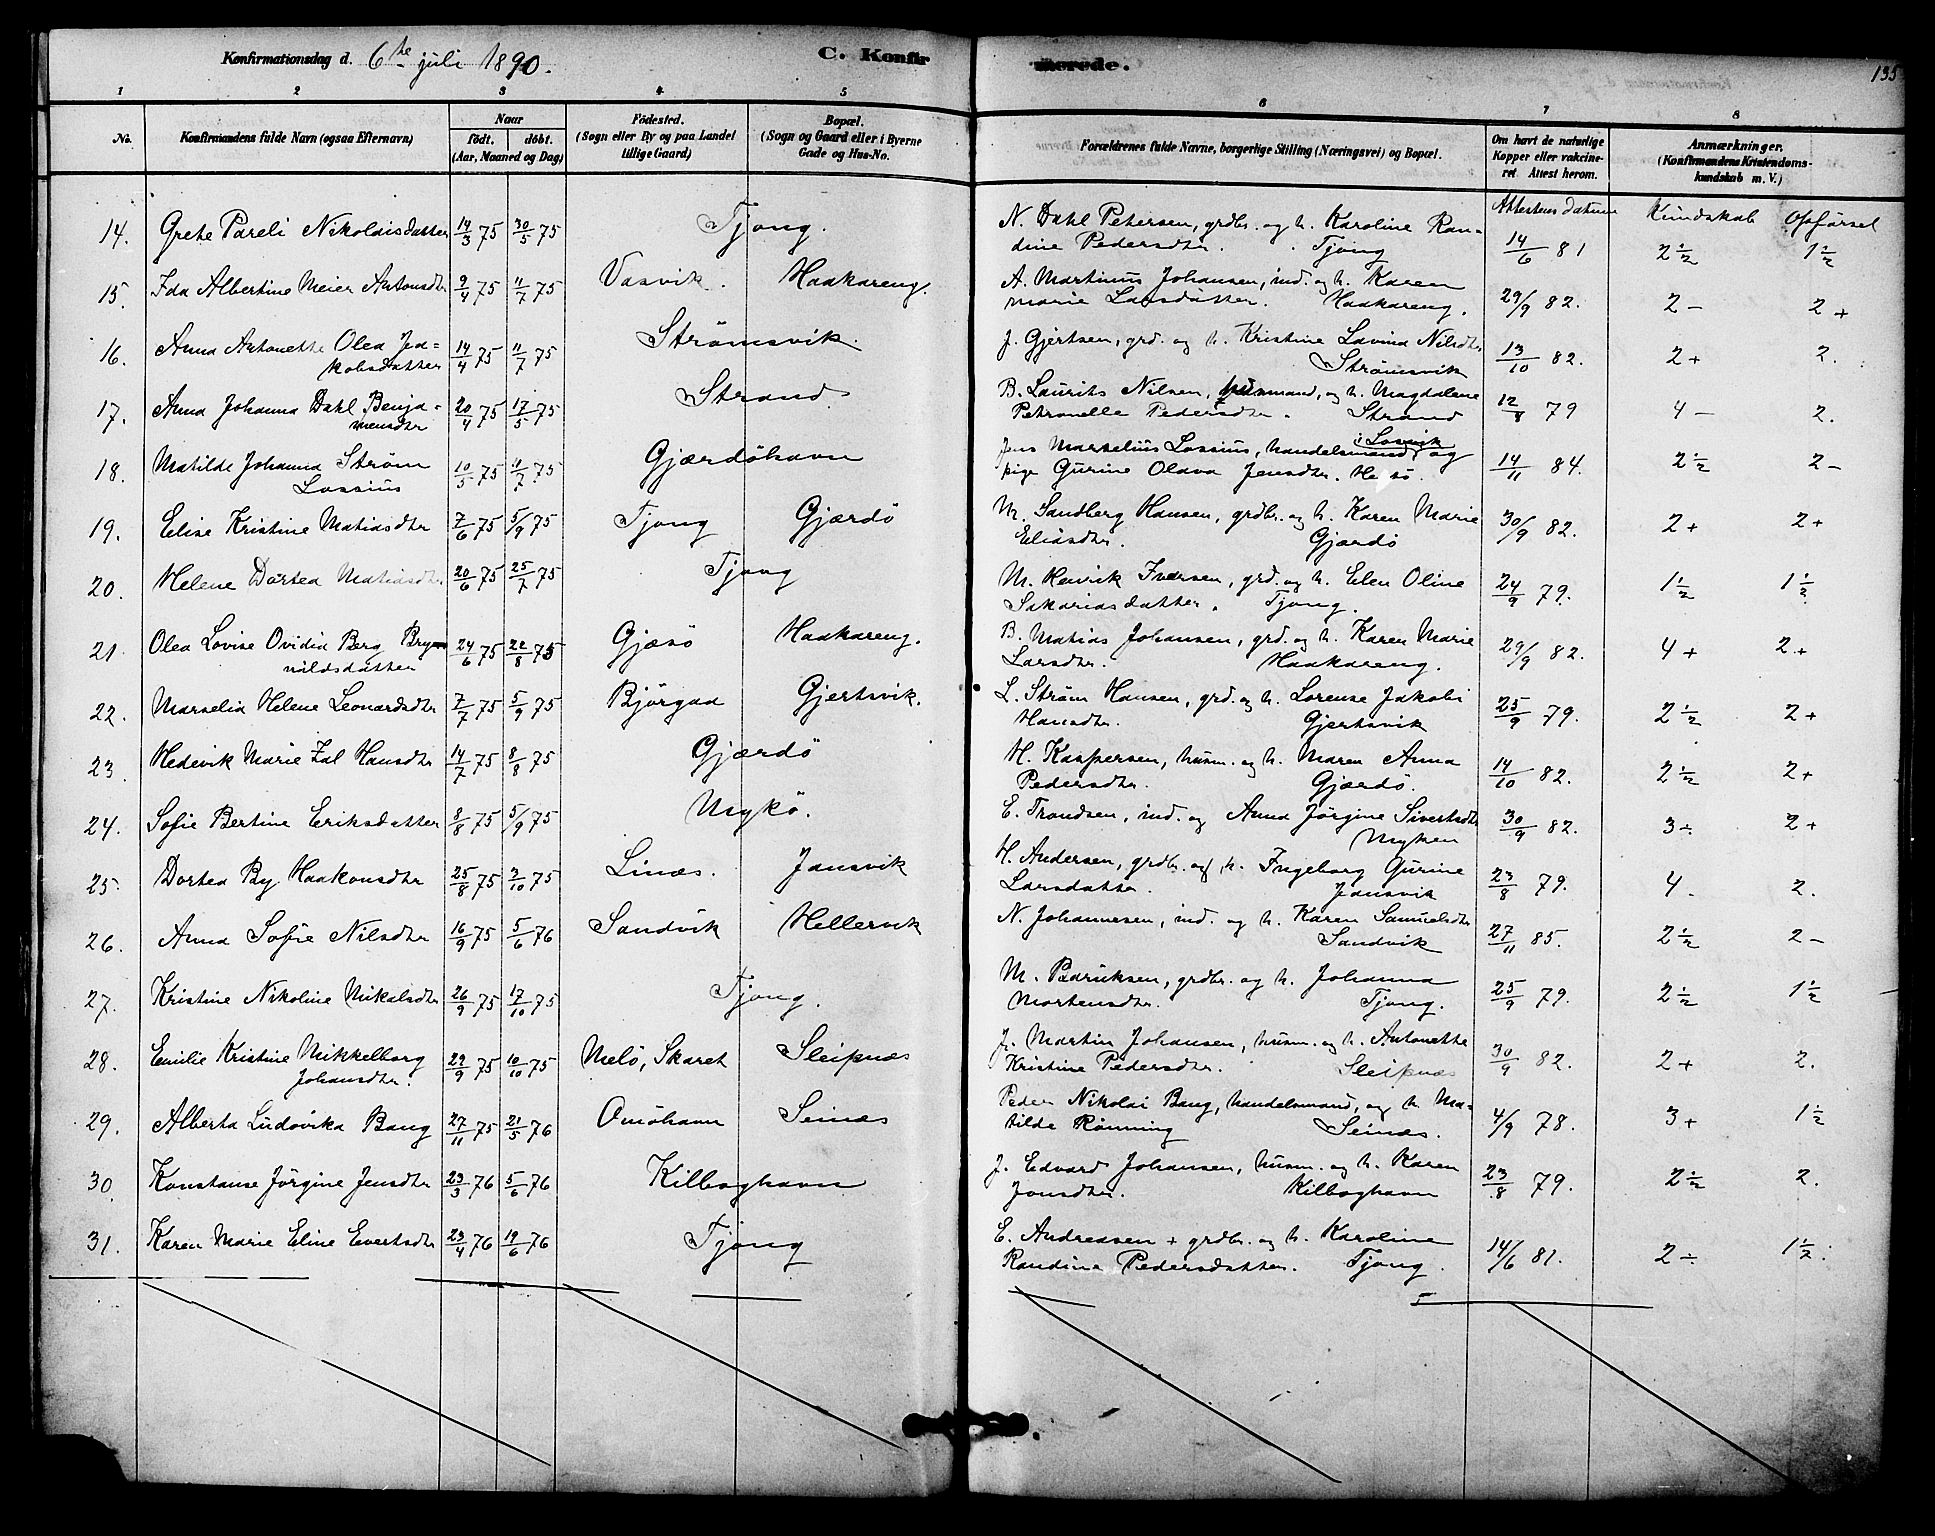 Konfirmationsdag d. 6te juli 1890. C. Konfirmerede. 135
1 2 3 4 5 6 7 8
No. Konfirmandens fulde Navn (ogsaa Efternavn) Naar födt. döbt. (Aar, Maaned og Dag) Födested. (Sogn eller By og paa Landet tillige Gaard) Bopæl. (Sogn og Gaard eller i Byerne Gade og Hus-No. Forældrenes fulde Navne, borgerlige Stilling (Næringsvei) og Bopæl. Om havt de naturlige Kopper eller vakcineret Attest herom. Anmærkninger. (Konfirmandens Kristendomskundskab m. V.)
Attestens datum Kundskab Opförsel
14. Grete Pareli Nikolaisdatter 14/3 75 30/5 75 Tjong. N. Dahl Petersen, grdbr. og h. Karoline Randine Pedersdtr. Tjong 14/6 81 2½ 1½
15. Ida Albertine Meier Antonsdtr 9/4 75 11/7 75 Vasvik. Haakareng. A. Martinus Johansen, ind. og h. Karen Marie Larsdatter. Haakareng. 29/9 82. 2 - 2 +
16. Anna Antonette Olea Jakobsdatter 14/4 75 11/7 75 Strömsvik. J. Gjertsen, grd. og h. Kristine Lavina Nilsdtr Strömsvik 13/10 82. 2 + 2.
17. Anna Johanna Dahl Benjamensdtr 20/4 75 17/5 75 Strand B. Laurits Nilsen, husmand, og h. Magdalene Petronelle Pedersdtr. Strand 12/8 79 4 - 2.
18. Matilde Johanna Ström Lossius 10/5 75 11/7 75 Gjærdöhavn Jens Marselius Lossius, handelsmand i Losvik og pige Gurine Olava Jensdtr. 14/11 84. 2½ 2 -
19. Elise Kristine Matiasdtr 7/6 75 5/9 75 Tjong Gjærdö M. Sandberg Hansen, grdbr. og h. Karen Marie Eliasdtr. Gjærdö 30/9 82. 2 + 2 +
20. Helene Dortea Matiasdtr 20/6 75 25/7 75 Tjong M. Henrik Iversen, grd. og h. Elen Oline Sakariasdatter. Tjong. 24/9 79. 1½ 1½
21. Olea Lovise Ovidia Berg Brynnildsdatter 24/6 75 22/8 75 Gjæsö Haakareng. B. Matias Johansen, grd. og h. Karen Marie Larsdtr. Haakareng. 29/9 82. 4 + 2 +
22. Marselia Helene Leonardsdtr 7/7 75 5/9 75 Björgaa Gjertsvik. L. Ström Hansen, grd. og h. Lorense Jakobi Hansdtr. Gjertsvik 25/9 79. 2½ 2 +
23. Hedevik Marie Zal Hansdtr 14/7 75 8/8 75 Gjærdö H. Kaspersen, husm. og h. Maren Anna Pedersdtr. Gjærdö. 14/10 82. 2½ 2 +
24. Sofie Bertine Eriksdatter 8/8 75 5/9 75 Mykö. E. Trondsen, ind. og Anna Jörgine Sivertsdtr Myken 30/9 82. 3 ÷ 2 +
25. Dortea By Haakonsdtr 25/8 75 3/10 75 Linæs. Jansvik H. Andersen, grdbr. og h. Ingeborg Gurine Larsdatter. Jansvik 23/8 79. 4 - 2.
26. Anna Sofie Nilsdtr 16/9 75 5/6 76 Sandvik Hellervik N. Johannesen, ind. og h. Karen Samuelsdtr Sandvik 27/11 85. 2½ 2 -
27. Kristine Nikoline Mikalsdtr 26/9 75 17/10 75 Tjong. M. Pedriksen, grdbr. og h. Johanna Mortensdtr. Tjong. 25/9 79. 2½ 1½
28. Emilie Kristine Mikkelborg Johansdtr. 29/9 75 10/10 75 Melö, Skaret Sleipnæs J. Martin Johansen, husm. og h. Antonette Kristine Pedersdtr. Sleipnæs 30/9 82. 2 + 2.
29. Alberta Ludovika Bang 27/11 75 21/5 76 Omöhavn Seinæs Peder Nikolai Bang, handelsmand, og h. Matilde Rönning Seinæs. 4/9 78. 3 + 1½
30. Konstanse Jörgine Jensdtr 23/3 76 5/6 76 Kilboghavn J. Edvard Johansen, husm. og h. Karen Jonsdtr. Kilboghavn 23/8 79. 2½ 2.
31. Karen Marie Eline Evertsdtr 23/4 76 19/6 76 Tjong E. Andreasen + grdbr. og h. Karoline Randine Pedersdatter. Tjong. 14/6 81. 2 ÷ 1½.